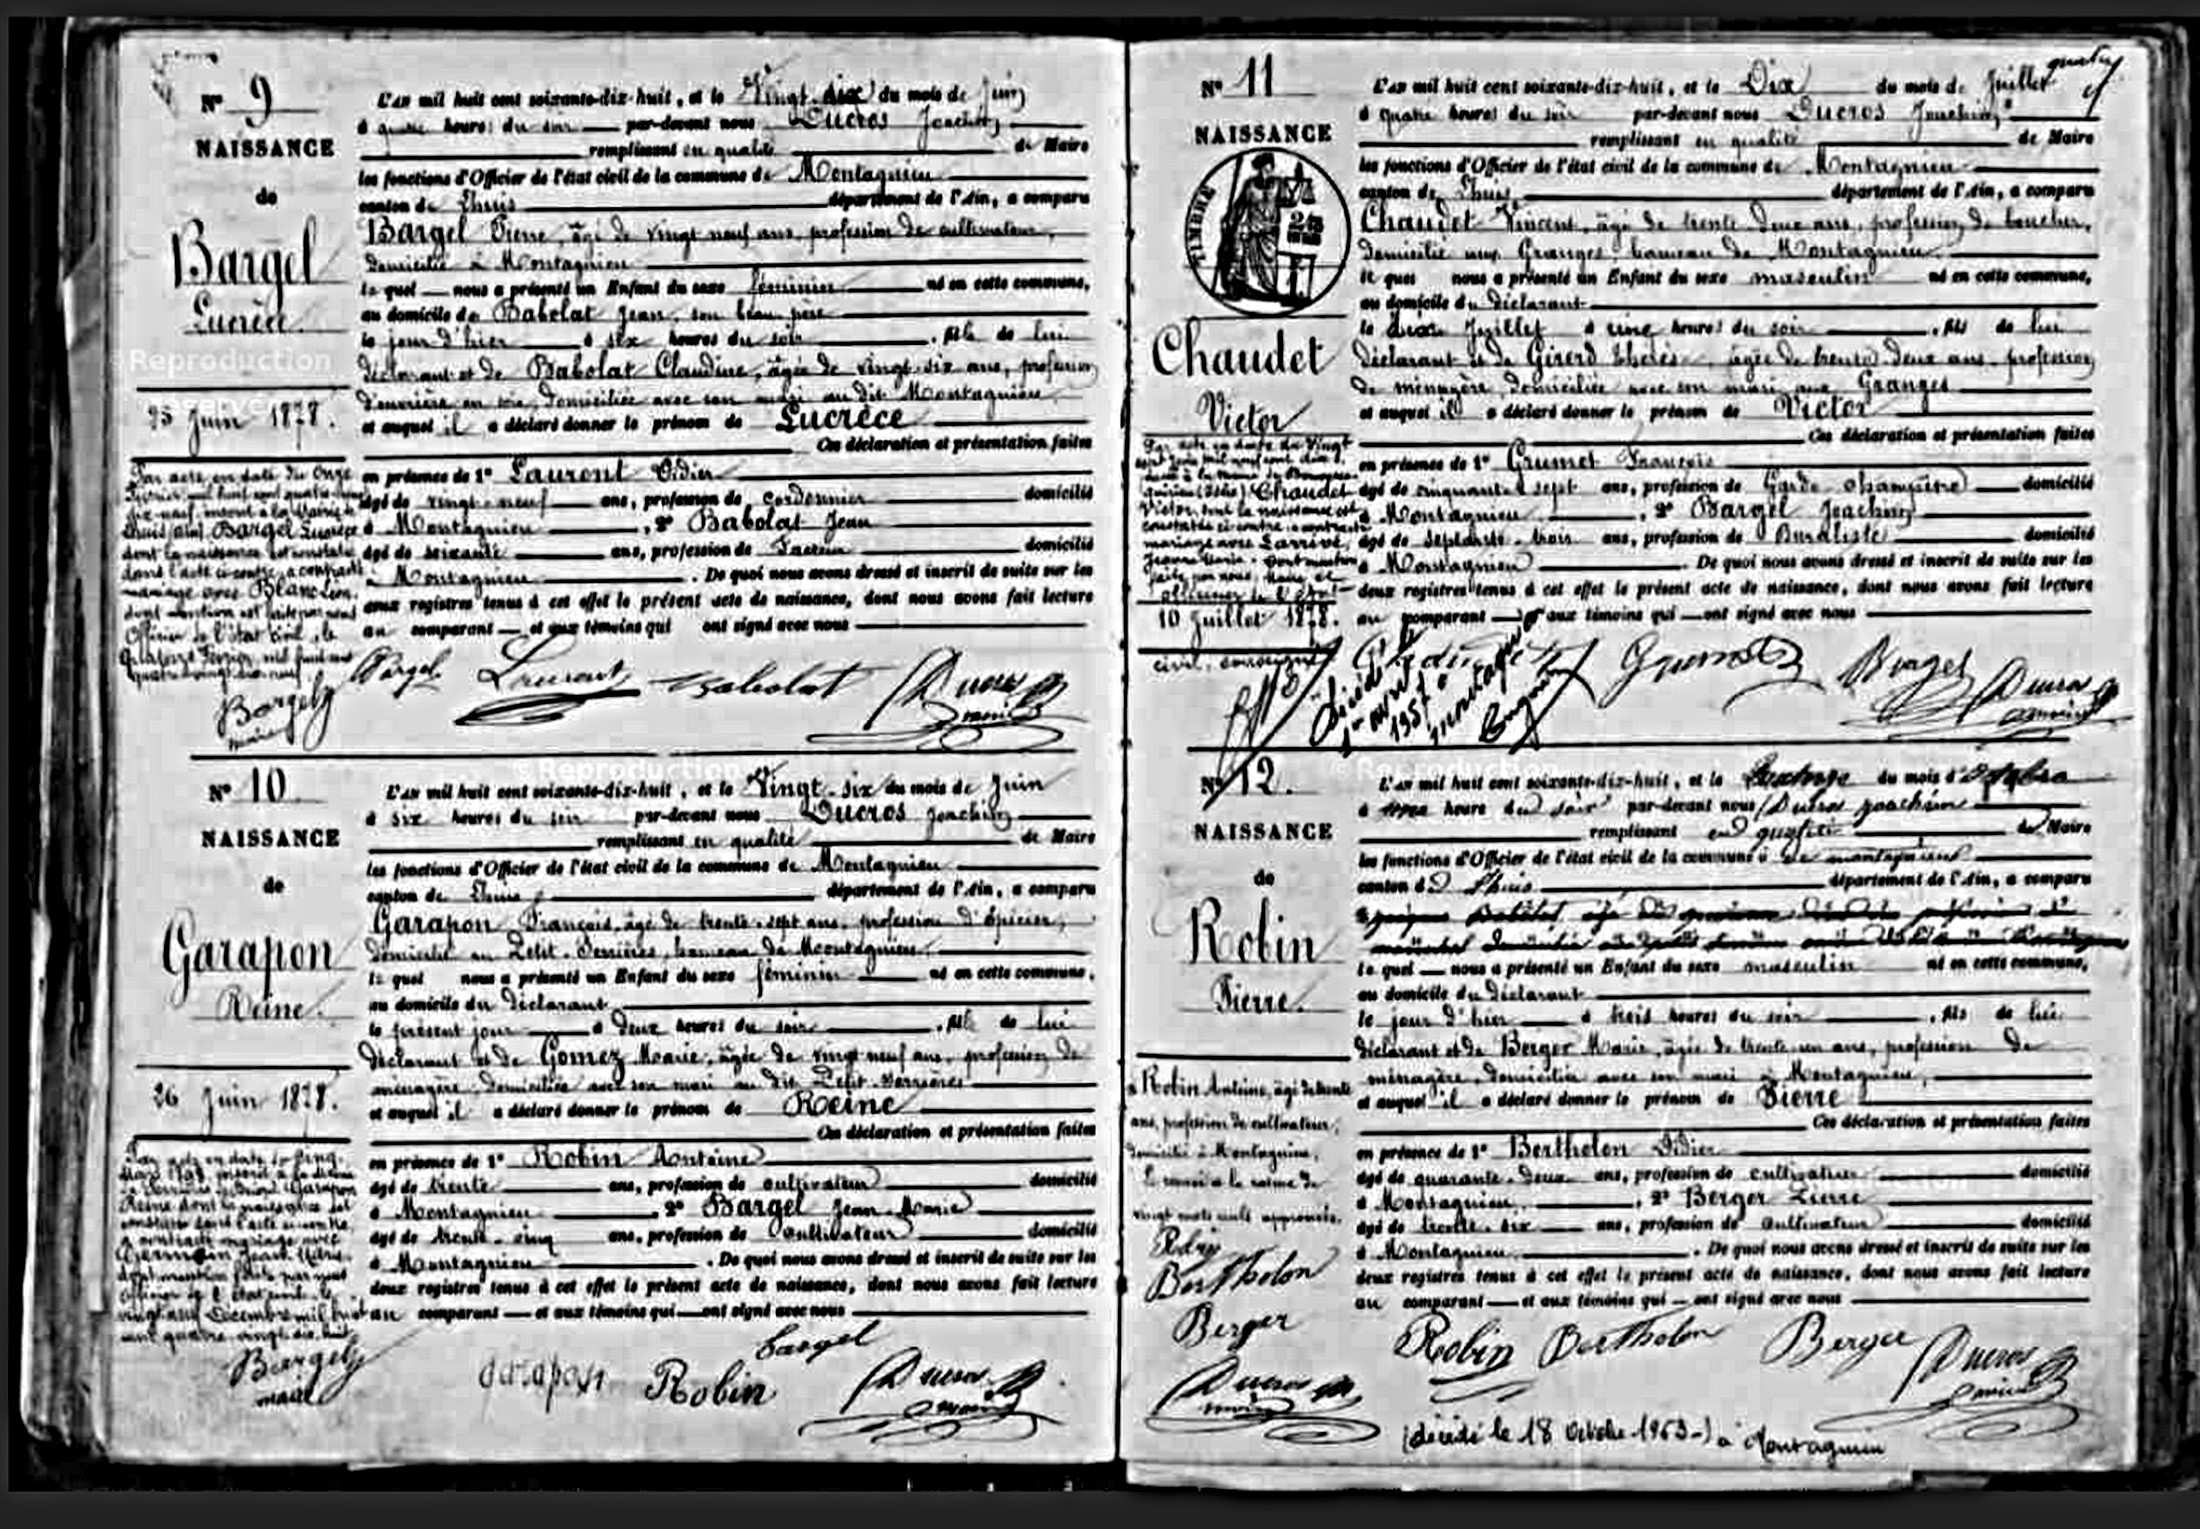 N° 9
NAISSANCE
de
Bargel
Lucrèce.
25 Juin 1878.
Par acte en date du onze
Février mil huit cent quatre-vingt
dix-neuf, inscrit à la Mairie de
Lhuis (Ain) Bargel Lucrèce
dont la naissance est constatée
dans l'acte ci-contre, a contracté
mariage avec Blanc Léon,
dont mention est faite par nous
Officier de l'état civil, le
quatorze Février mil huit cent
quatre-vingt-dix-neuf.
Bargel
maire
L'AN mil huit cent soixante-dix-huit, et le Vingt-six du mois de Juin
à quatre heures du soir par-devant nous Ducros Joachim,
remplissant en qualité de Maire
les fonctions d'Officier de l'état civil de la commune de Montagnieu
canton de Lhuis département de l'Ain, a comparu
Bargel Pierre, âgé de vingt neuf ans, profession de cultivateur,
domicilié à Montagnieu
le quel nous a présenté un Enfant du sexe féminin né en cette commune,
au domicile de Babolat Jean, son beau père
le jour d'hier à six heures du soir, fille de lui
déclarant et de Babolat Claudine, âgée de vingt-six ans, profession
d'ouvrière en soie, domiciliée avec son mari au dit Montagnieu
et auquel il a déclaré donner le prénom de Lucrèce
Ces déclaration et présentation faites
en présence de 1° Laurent Didier
âgé de vingt-neuf ans, profession de cordonnier domicilié
à Montagnieu, 2° Babolat Jean
âgé de soixante ans, profession de Facteur domicilié
à Montagnieu. De quoi nous avons dressé et inscrit de suite sur les
deux registres tenus à cet effet le présent acte de naissance, dont nous avons fait lecture
au comparant et aux témoins qui ont signé avec nous
Bargel Laurent Babolat Ducros
maire
N° 10
NAISSANCE
de
Garapon
Reine.
26 Juin 1878.
Par acte en date du cinq
Mars 1898, inscrit à la Mairie
Garapon
Reine dont la naissance est
constatée dans l'acte ci-contre,
a contracté mariage avec
Germain Jean
dont mention faite par nous
officier de l'état civil, le
vingt-neuf Décembre mil huit
cent quatre-vingt-dix-huit
Bargel
maire
L'AN mil huit cent soixante-dix-huit, et le Vingt-six du mois de Juin
à six heures du soir par-devant nous Ducros Joachim
remplissant en qualité de Maire
les fonctions d'Officier de l'état civil de la commune de Montagnieu
canton de Lhuis département de l'Ain, a comparu
Garapon François, âgé de trente-sept ans, profession d'Epicier,
domicilié au Petit-Serrières, hameau de Montagnieu
le quel nous a présenté un Enfant du sexe féminin né en cette commune,
au domicile du déclarant
le présent jour à deux heures du soir, fille de lui
déclarant et de Gomez Marie, âgée de vingt-neuf ans, profession de
ménagère, domiciliée avec son mari au dit Petit-Serrières
et auquel il a déclaré donner le prénom de Reine
Ces déclaration et présentation faites
en présence de 1° Robin Antoine
âgé de trente ans, profession de cultivateur domicilié
à Montagnieu, 2° Bargel Jean-Marie
âgé de trente-cinq ans, profession de Cultivateur domicilié
à Montagnieu. De quoi nous avons dressé et inscrit de suite sur les
deux registres tenus à cet effet le présent acte de naissance, dont nous avons fait lecture
au comparant et aux témoins qui ont signé avec nous
Bargel
Garapon Robin Ducros
maire
N° 11
NAISSANCE
TIMBRE
Chaudet
Victor
Par acte en date du Vingt
Chaudet
Victor, dont la naissance est
constatée ci-contre, a contracté
mariage avec Larrivé,
Jeanne Marie. Dont mention
faite par nous, Maire, et
officier de l'état
10 Juillet 1878.
civil, soussigné
L'AN mil huit cent soixante-dix-huit, et le Dix du mois de Juillet
à quatre heures du soir par-devant nous Ducros Joachim,
remplissant en qualité de Maire
les fonctions d'Officier de l'état civil de la commune de Montagnieu
canton de Lhuis département de l'Ain, a comparu
Chaudet Vincent, âgé de trente-deux ans, profession de boucher,
domicilié aux Granges, hameau de Montagnieu
le quel nous a présenté un Enfant du sexe masculin né en cette commune,
au domicile du déclarant
le dix Juillet à cinq heures du soir, fils de lui
déclarant et de Girerd Thérèse, âgée de trente-deux ans, profession
de ménagère, domiciliée avec son mari aux Granges
et auquel il a déclaré donner le prénom de Victor
Ces déclaration et présentation faites
en présence de 1° Grumet François
âgé de cinquante-sept ans, profession de Garde-champêtre domicilié
à Montagnieu, 2° Bargel Joachim
âgé de septante-trois ans, profession de Buraliste domicilié
à Montagnieu. De quoi nous avons dressé et inscrit de suite sur les
deux registres tenus à cet effet le présent acte de naissance, dont nous avons fait lecture
au comparant et aux témoins qui ont signé avec nous
Grumet Bargel Ducros
maire
N° 12.
NAISSANCE
de
Robin
Pierre.
Robin Antoine, âgé de trente
ans, profession de cultivateur,
domicilié à Montagnieu,
vingt mots nuls approuvés.
Robin
Bertholon
Berger
Ducros
maire
L'AN mil huit cent soixante-dix-huit, et le quatorze du mois d'Octobre
à une heure du soir par-devant nous Ducros Joachim
remplissant en qualité de Maire
les fonctions d'Officier de l'état civil de la commune de Montagnieu
canton de Lhuis département de l'Ain, a comparu
le quel nous a présenté un Enfant du sexe masculin né en cette commune,
au domicile du déclarant
le jour d'hier à trois heures du soir, fils de lui
déclarant et de Berger Marie, âgée de trente-un ans, profession de
ménagère, domiciliée avec son mari à Montagnieu,
et auquel il a déclaré donner le prénom de Pierre
Ces déclaration et présentation faites
en présence de 1° Bertholon Didier
âgé de quarante-deux ans, profession de cultivateur domicilié
à Montagnieu, 2° Berger Pierre
âgé de trente-six ans, profession de Cultivateur domicilié
à Montagnieu. De quoi nous avons dressé et inscrit de suite sur les
deux registres tenus à cet effet le présent acte de naissance, dont nous avons fait lecture
au comparant et aux témoins qui ont signé avec nous
Robin Bertholon Berger Ducros
maire
(décédé le 18 Octobre 1963-) à Montagnieu